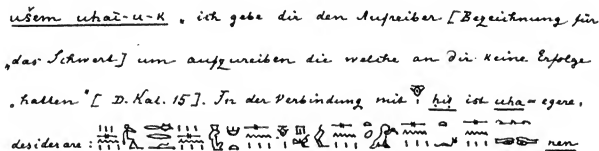 ušem uhai-u-k „ ich gebe dir den Aufreiber [Bezeichnung für
„das Schwert] um aufzureiben die welche an dir keine Erfolge
„hatten" [D. Kal. 15]. In der Verbindung mit ḥis ist uha = egere,
desiderare: nen